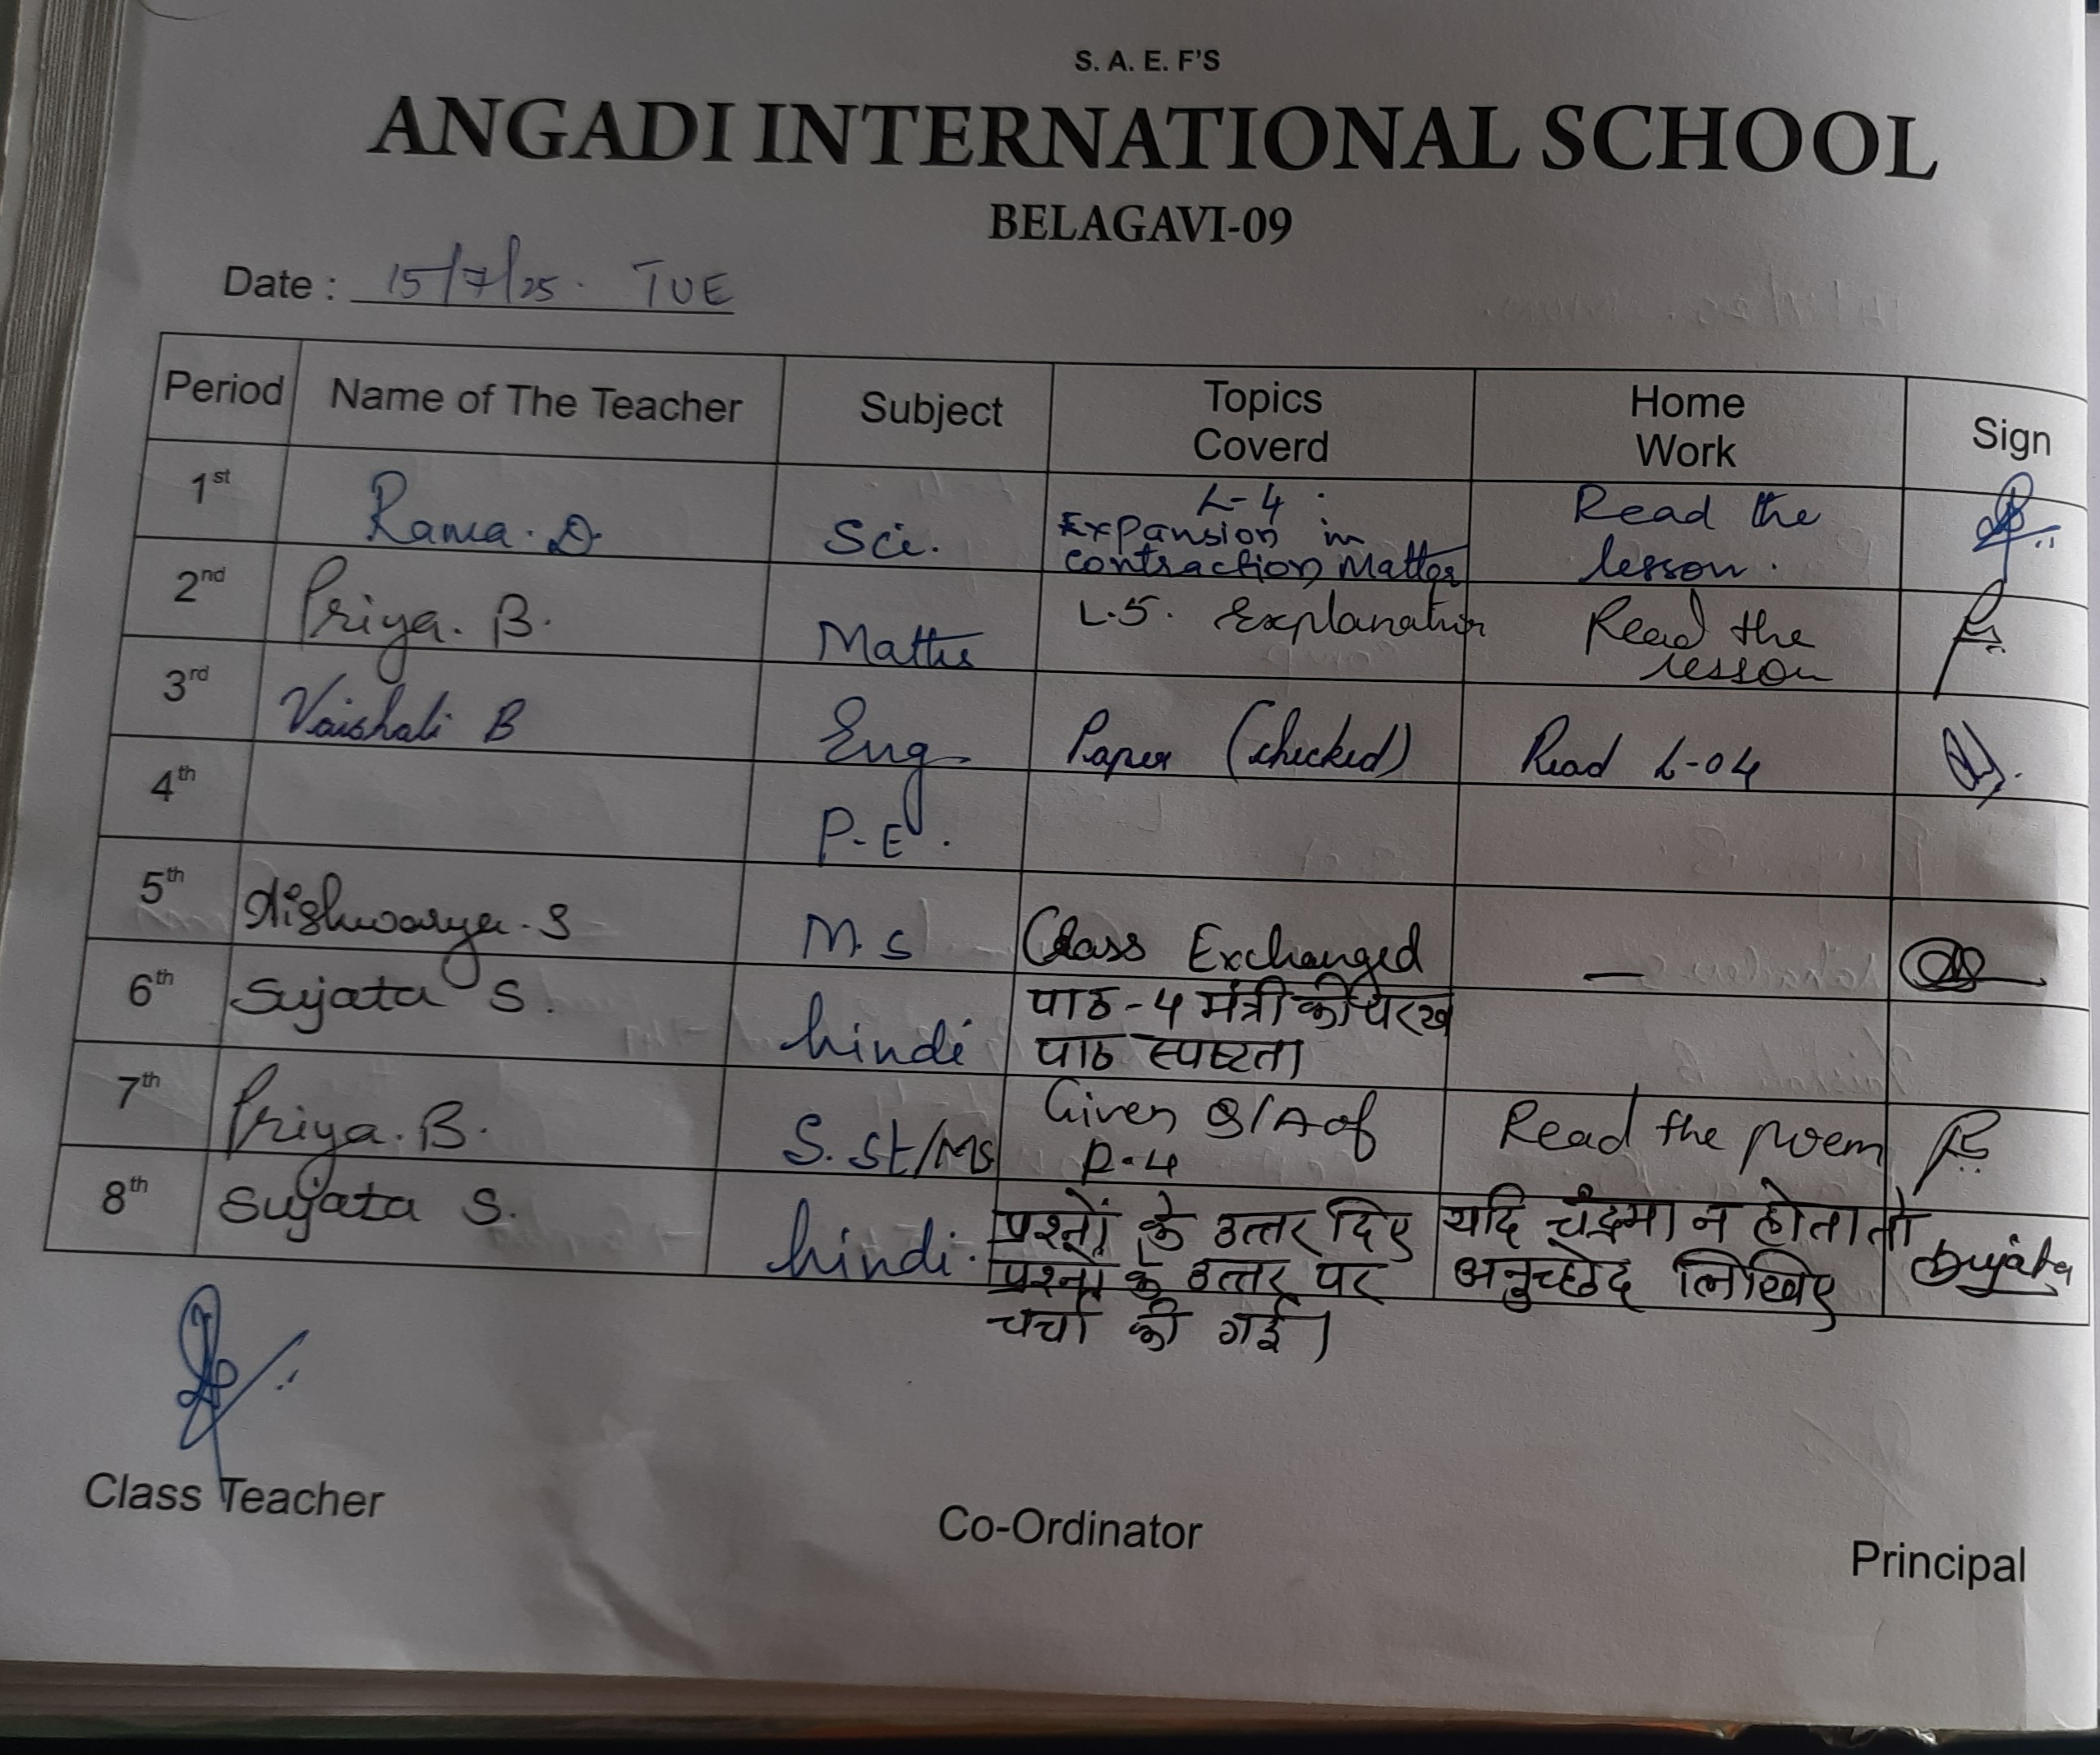 S. A. E. F'S
ANGADI INTERNATIONAL SCHOOL
BELAGAVI-09
Date : 15/7/25. TUE
Period Name of The Teacher Subject Topics Coverd Home Work Sign
1st Rama. D. Sci. L-4. Expansion in contraction Matter Read the lesson.
2nd Priya. B. Maths L.5. Explanation Read the lesson
3rd Vaishali B Eng Paper (checked) Read L-04
4th P.E.
5th Aishwarya. S M.S Class Exchanged —
6th Sujata S. hindi पाठ-4 मंत्री की परख पाठ स्पष्टता
7th Priya. B. S.St/MS Given Q/A of P-4 Read the poem
8th Sujata S. hindi. प्रश्नों के उत्तर दिए प्रश्नों के उत्तर पर चर्चा की गई। यदि चंद्रमा न होता तो अनुच्छेद लिखिए Sujata
Class Teacher
Co-Ordinator
Principal